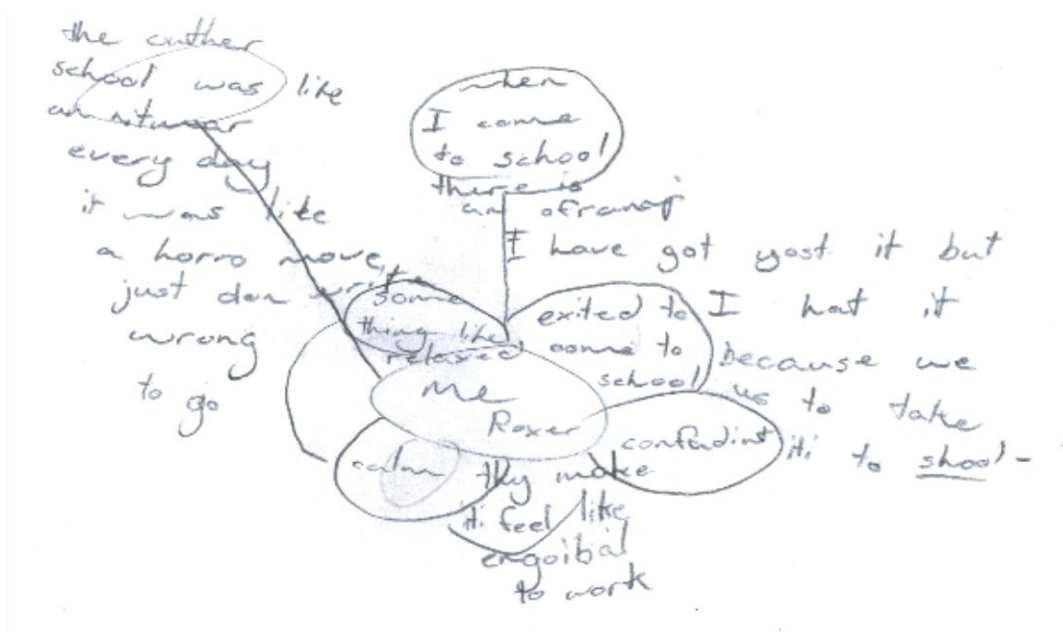 the outher
school was like
an nitwear
every day
it was like
a horro move
just don write
wrong
to go
when
I come
to school
there is
an
I have got yost it but
I hat it
because we
us to take
iti to shool-
some
thing like
relaxed
exited to
come to
school
me
Roxer
confadint
calm
thy make
iti feel like
engoibal
to work